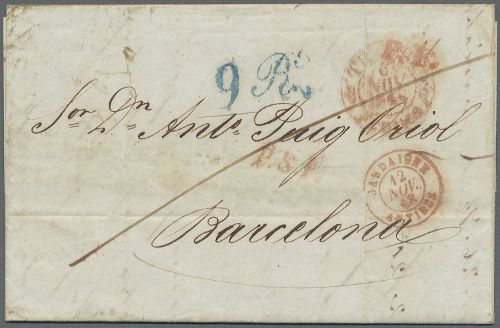 9 Rs
P.P.
NOV
Sor Dn Anto Puig Oriol
SARDAIGNE
12
NOV.
ANTIBES
Barcelona